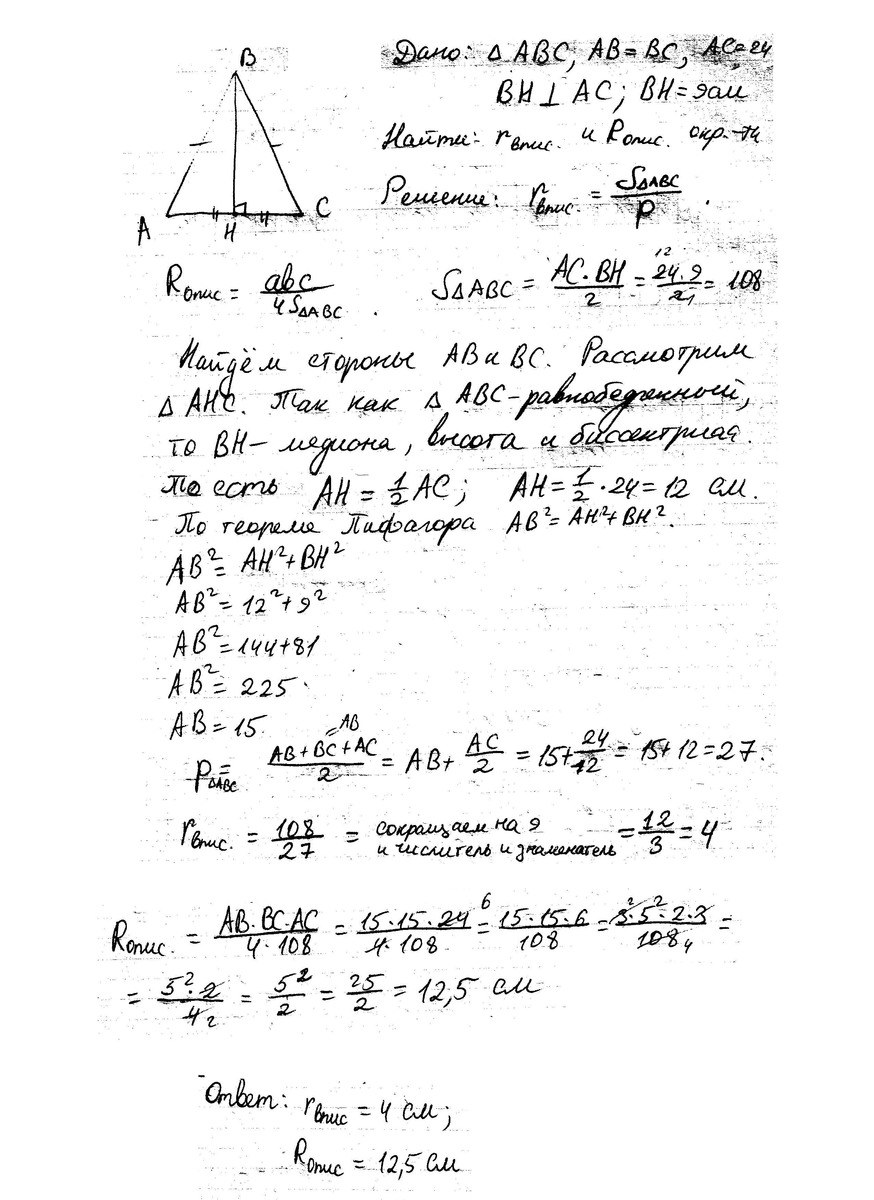 B
A
H
C
Дано: Δ ABC, AB = BC, AC=24
BH ⊥ AC; BH = 9см
Найти: rвпис. и Rопис. окр-ти
Решение: rвпис. = SΔABC / p .
Rопис = abc / 4SΔABC . SΔABC = AC·BH / 2 = 24·9 / 2 = 108
12
1
Найдём стороны AB и BC. Рассмотрим
Δ AHC. Так как Δ ABC - равнобедренный,
то BH - медиона, высота и биссектриса.
То есть AH = 1/2 AC; AH = 1/2 · 24 = 12 см.
По теореме Пифагора AB² = AH² + BH².
AB² = AH² + BH²
AB² = 12² + 9²
AB² = 144 + 81
AB² = 225
AB = 15
=AB
pΔABC = AB + BC + AC / 2 = AB + AC / 2 = 15 + 24 / 2 = 15 + 12 = 27.
rвпис. = 108 / 27 = сокращаем на 9 и числитель и знаменатель = 12 / 3 = 4
Rопис. = AB·BC·AC / 4·108 = 15·15·24 / 4·108 = 15·15·6 / 108 = 3²·5²·2·3 / 108 =
6
4
= 5²·2 / 4 = 5² / 2 = 25 / 2 = 12,5 см
2
Ответ: rвпис = 4 см;
Rопис = 12,5 см